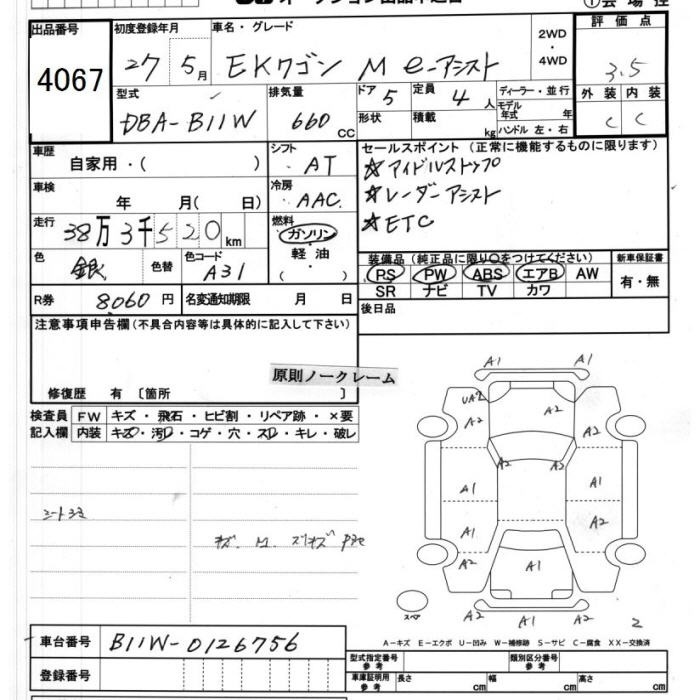 出品番号
4067
初度登録年月
27 5月
車名・グレード
EKワゴン M e-アシスト
2WD
・
4WD
評価点
3.5
型式
DBA-B11W
排気量
660 CC
ドア 5
形状
定員 4 人
積載 kg
ディーラー・並行
モデル年式 年
ハンドル 左・右
外装 内装
C C
車歴
自家用・( )
シフト
AT
セールスポイント (正常に機能するものに限ります)
☆アイドルストップ
☆レーダーアシスト
☆ETC
車検
年 月( 日)
冷房
AAC
走行
38万3千520km
燃料
ガソリン
・
軽油
色
銀 色替
色コード
A31
装備品 (純正品に限り○をつけてください)
PS PW ABS エアB AW
SR ナビ TV カワ
新車保証書
有・無
R券 8060円
名変通知期限 月 日
後日品
注意事項申告欄 (不具合内容等は具体的に記入して下さい)
原則ノークレーム
修復歴 有 〔箇所 〕
検査員
記入欄
FW キズ・飛石・ヒビ割・リペア跡・×要
内装 キズ・汚・コゲ・穴・スレ・キレ・破レ
A1 A1
UA2
A2 A2 A2
A2 A2
A1 A1
A2 A2
A2 A1 A1
スペア
A2 A2
2
A-キズ E-エクボ U-凹み W-補修跡 S-サビ C-腐食 XX-交換済
車台番号
B11W-0126756
登録番号
型式指定番号
参考
類別区分番号
参考
車庫証明用
参考
長さ cm
幅 cm
高さ cm